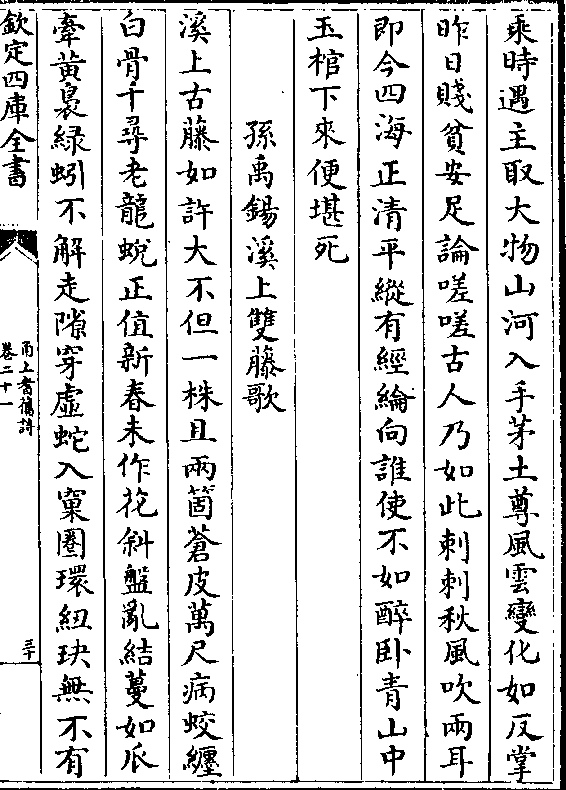 乘時遇主取大物山河入手茅土尊風雲變化如反掌
昨日賤貧安足論嗟嗟古人乃如此刺刺秋風吹兩耳
即今四海正清平縱有經綸向誰使不如醉卧青山中
玉棺下來便堪死
孫禹錫溪上雙藤歌
溪上古藤如許大不但一株且兩箇蒼皮萬尺病蛟纏
白骨千尋老龍蛻正值新春未作花斜盤亂結蔓如瓜
牽黃裊綠蚓不解走隙穿虛蛇入窠圈環紐玦無不有
欽定四庫全書
甬上耆舊詩
卷二十一
三十